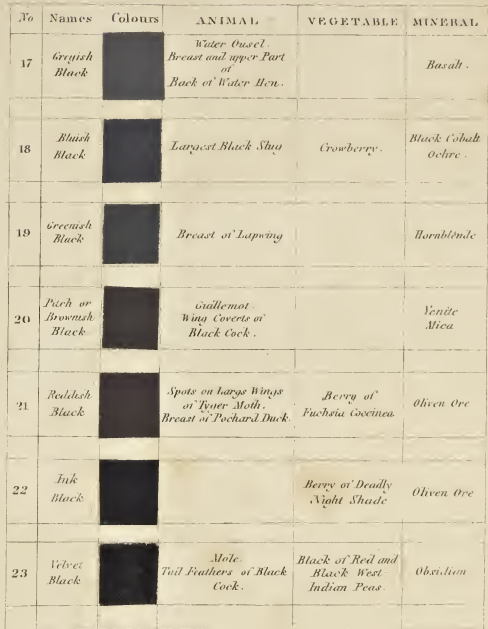 No Names Colours ANIMAL VEGETABLE MINERAL
17 Greyish Black Water Ousel. Breast and upper Part of Back of Water Hen. Basalt.
18 Bluish Black Largest Black Slug Crowberry. Black Cobalt Ochre.
19 Greenish Black Breast of Lapwing Hornblende
20 Pitch or Brownish Black Guillemot. Wing Coverts of Black Cock. Yenite Mica
21 Reddish Black Spots on Largs Wings of Tyger Moth. Breast of Pochard Duck. Berry of Fuchsia Coccinea Oliven Ore
22 Ink Black Berry of Deadly Night Shade Oliven Ore
23 Velvet Black Mole. Tail Feathers of Black Cock. Black of Red and Black West Indian Peas. Obsidian